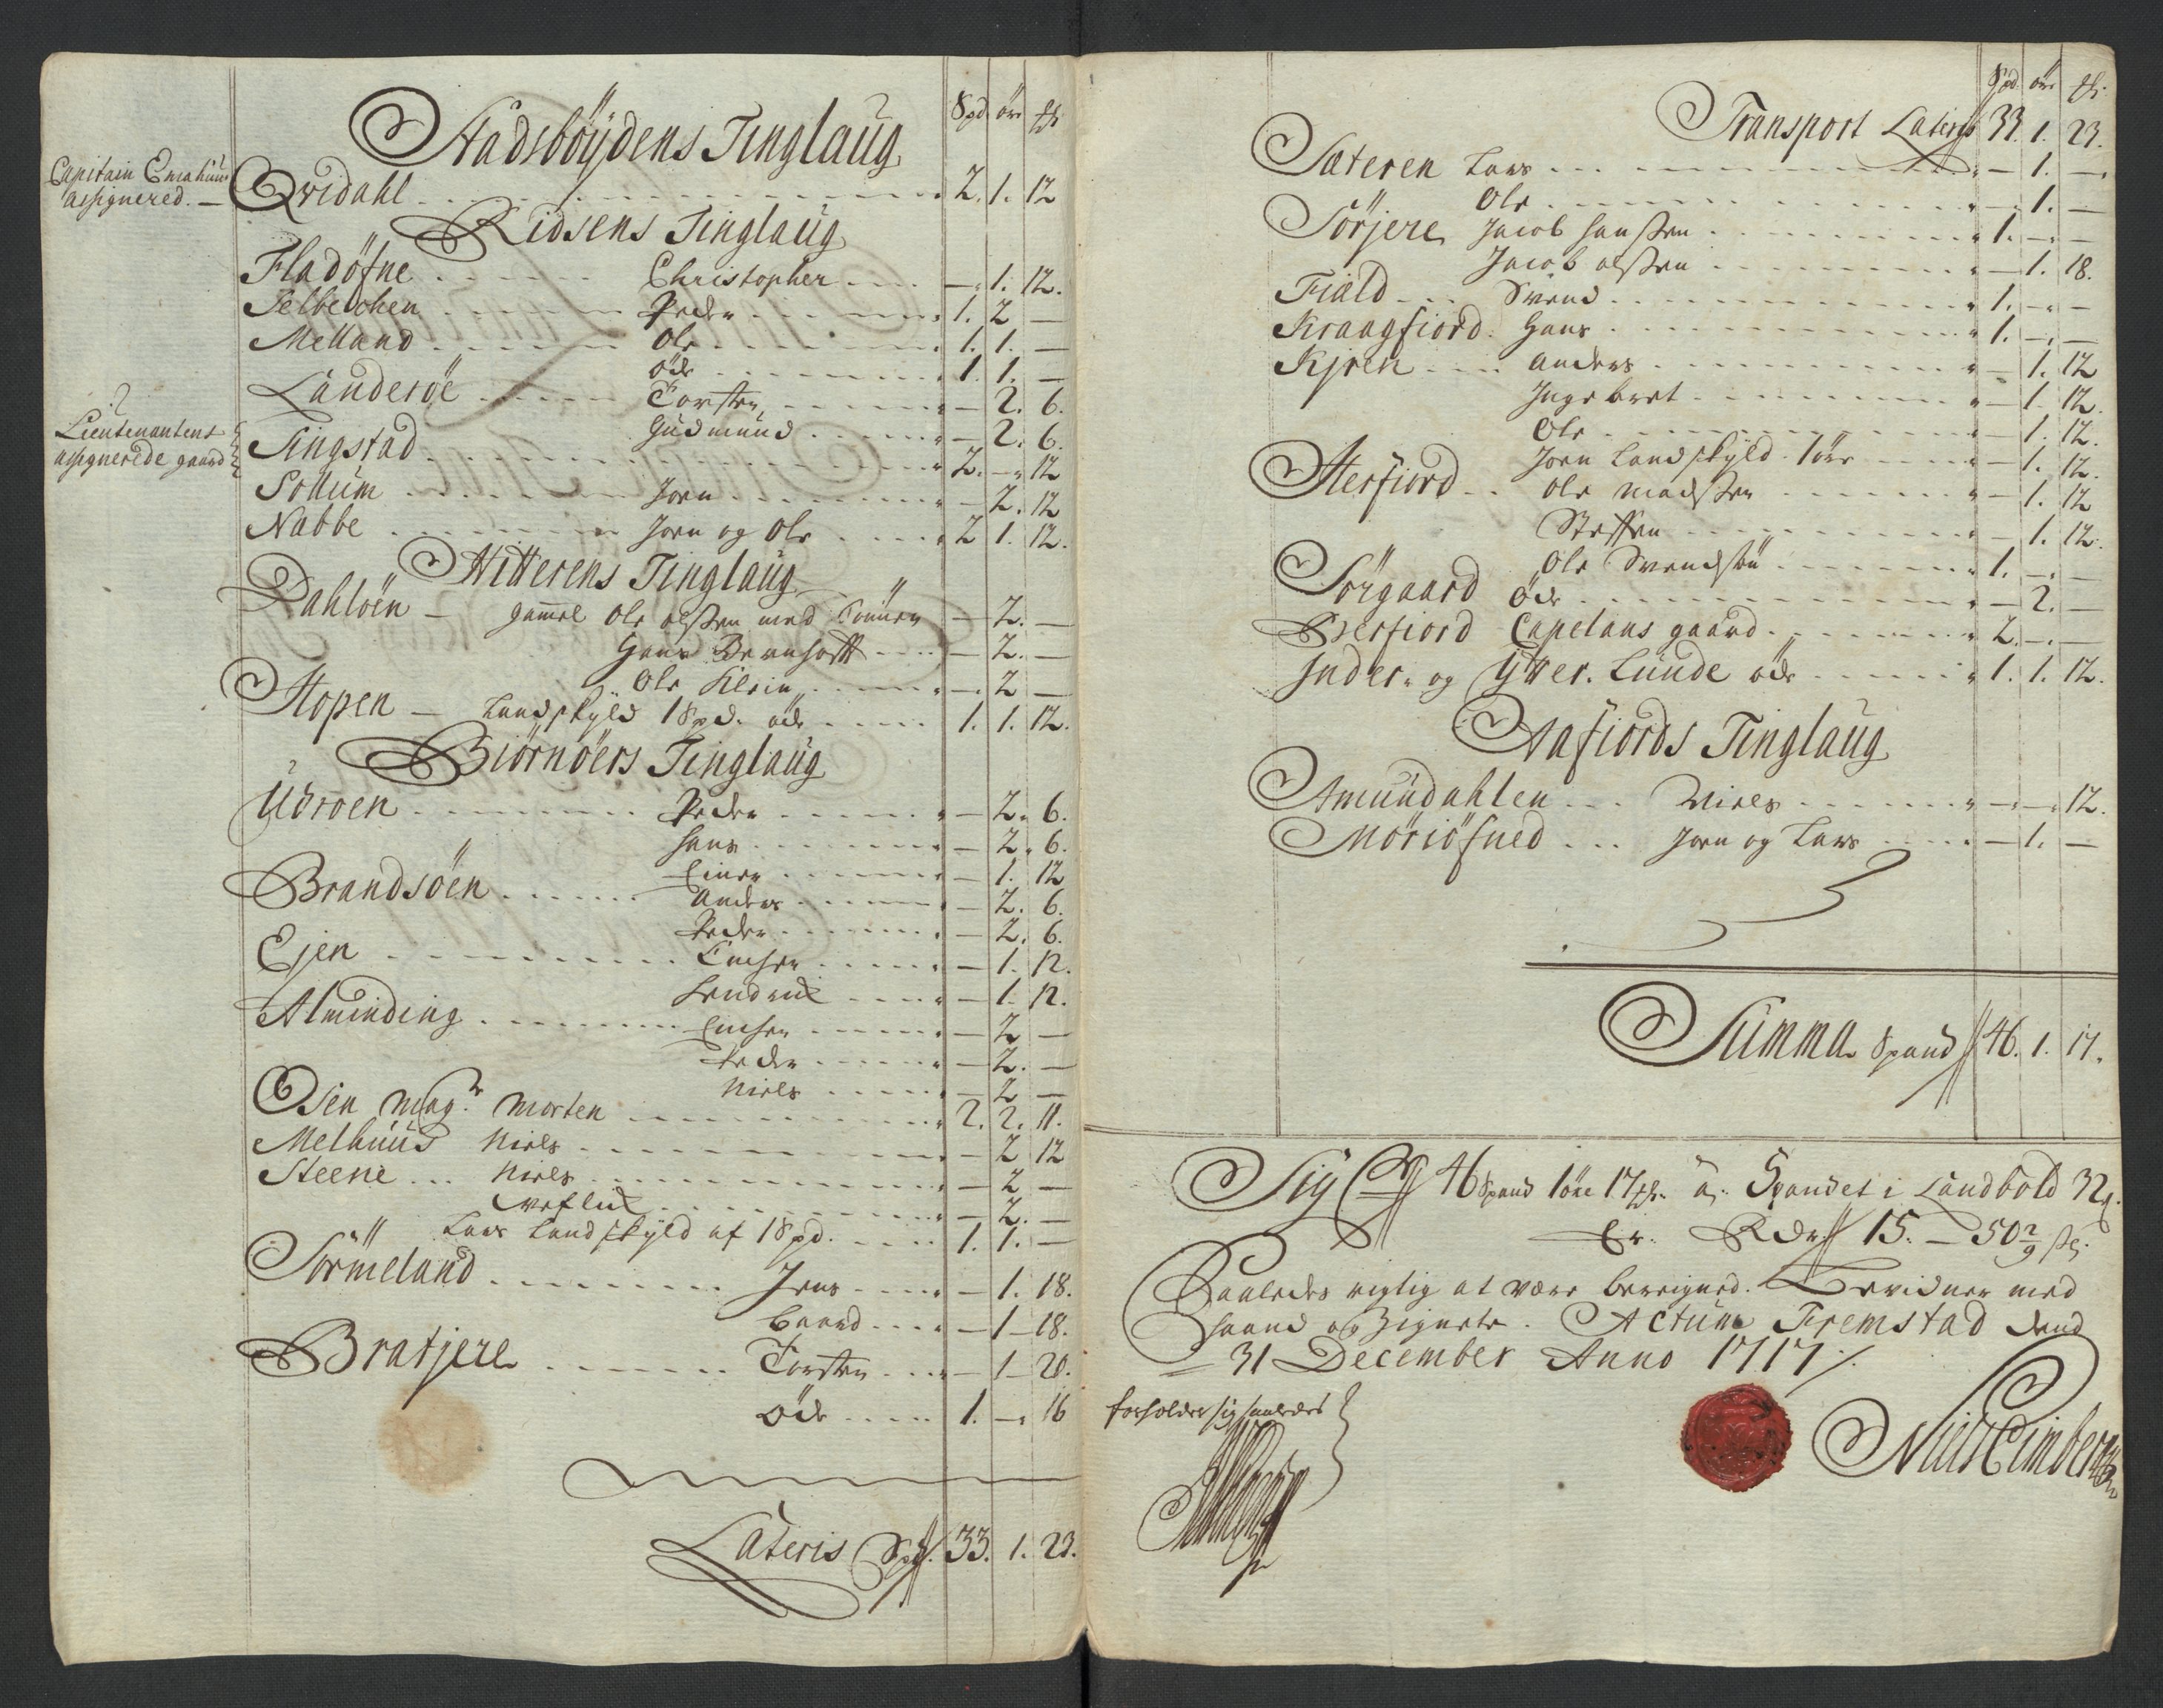 Spd. öre ℔
Stadsböÿdens Tinglaug
Capitain Emahuus
assignered. —
Qvidahl 2. 1. 12
Ridsens Tinglaug
Fladöfne Christopher — 1. 12.
Selbechen Peder 1. 2 —
Melland Ole 1. 1. —
öde 1. 1. —
Landeröe Torsten — 2. 6.
Gudmund — 2. 6.
Lieutenantens
assignerede gaard
Tingstad 2. — 12
Sollum Joen — 2. 12
Nabbe Joen og Ole 2 1. 12.
Hitterens Tinglaug
Dahlöen — gammel Ole olssen med — 2. —
Hans Bernhoft — 2. —
Ole Klein — 2 —
Hopen — Landskyld 1 Spd. öde 1. 1. 12.
Biörnöers Tinglaug
Udroen Peder — 2. 6.
Hans — 2. 6.
Einer — 1. 12
Brandsöen Anders — 2. 6.
Peder — 2. 6.
Ejen — 1. 12.
Hendrich — 1. 12.
Alminding — 2 —
Peder — 2. —
Niels — 2 —
Osen Magr. Morten 2. 2. 11.
Melhuus Niels — 2 12
Steene Niels — 2 —
— 2. —
Lars Landskyld af 1 Spd. 1. 1. —
Sörmeland Jens — 1. 18.
Baard — 1 — 18.
Bratjere Torsten — 1 — 20.
Öde 1. — 16
Lateris Spd. 33. 1. 23.
Spd. öre ℔
Transport Lateris 33. 1. 23.
Sæteren Lars — 1. —
Ole — 1. —
Sörjere Jacob Hanssen 1. — —
Jacob olssen — 1. 18.
Fiäld Svend 1. — —
Kraagfiord Hans 1. — —
Kjren Anders — 1. 12
Ingebret — 1. 12.
Ole — 1. 12.
Joen Landskyld 1 öre — 1. 12.
Herfiord Ole Madssen — 1. 12
Steffen — 1. 12.
Ole Svendsön 1. — —
Sörgaard Öde — 2. —
Bserfiord Capelans gaard 2. — —
Inder- og Ytter. Lunde öde 1. 1. 12.
Aafiords Tinglaug
Amundahlen Niels — — 12.
Möriöfned Joen og Lars — 1. —
Summa Spand 46. 1. 17.
Siger 46 Spand 1 öre 17 ℔. a. Spandet i Landbold 32 s.
Er. Rdr 15. — 50 2/9 s.
Saaledes rigtig at være beregned. Bevidner med
Haand og Zignete. Actum Fremstad dend
31 December Anno 1717 /.
forholder sig saaledes